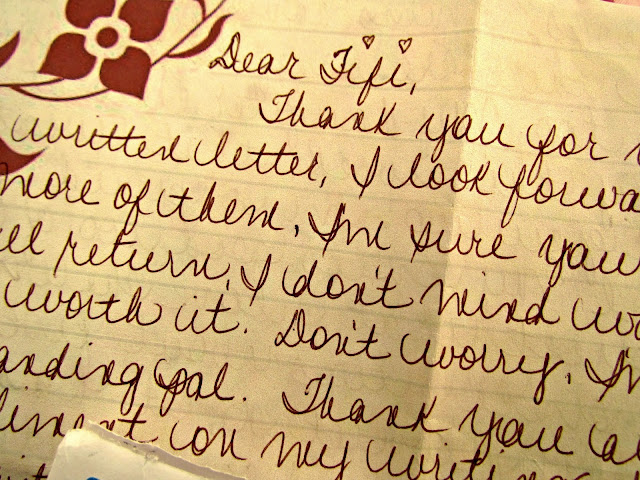 Dear Fifi,
Thank you for
written letter, I look forwa
more of them, I'm sure you
ll return, I don't mind wo
worth it. Don't worry, I'm
anding pal. Thank you al
liment on my writing